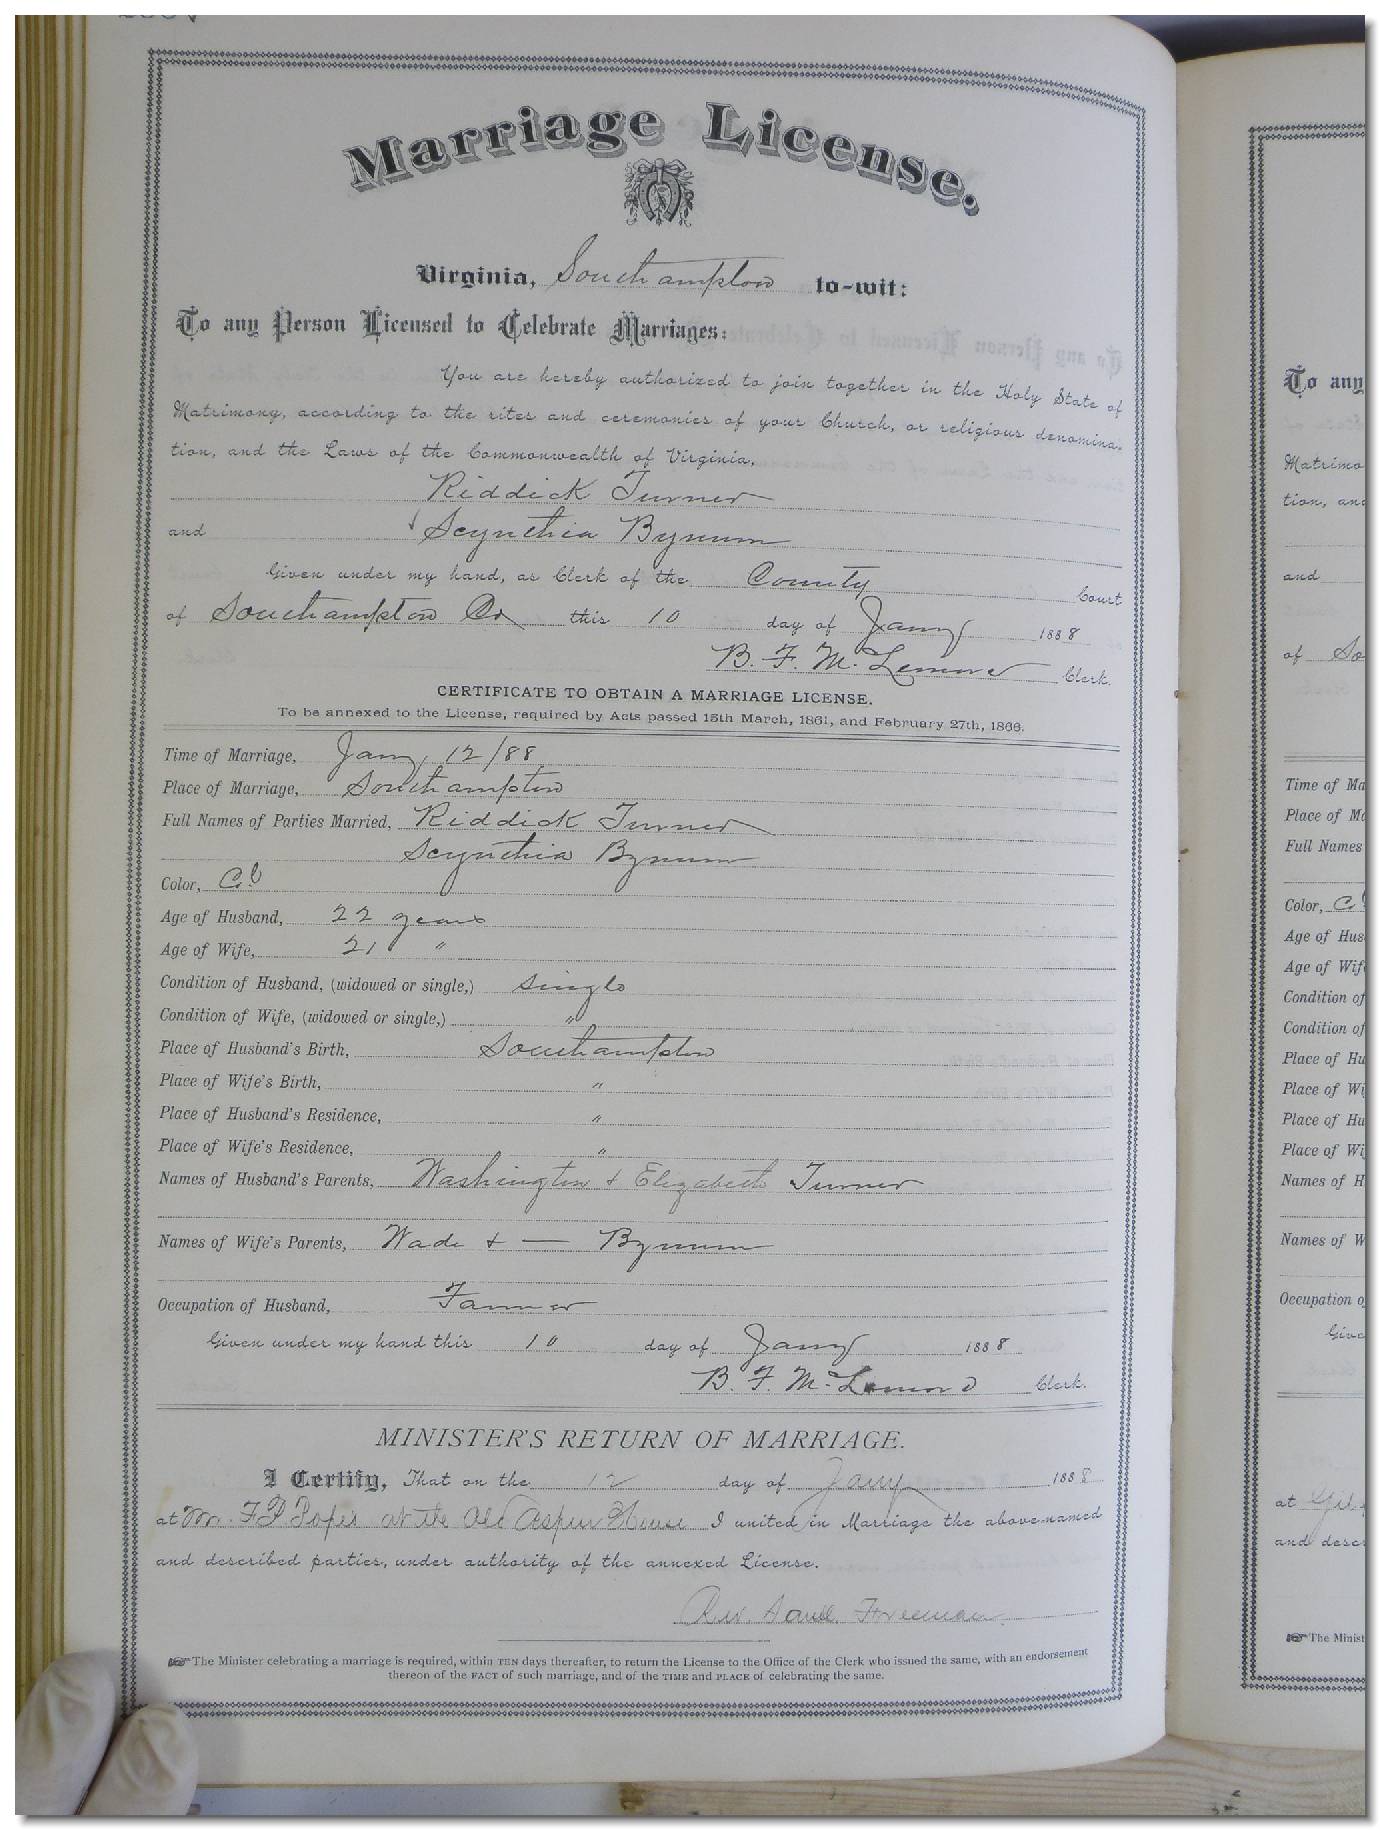 Marriage License.
Virginia, Southampton to-wit:
To any Person Licensed to Celebrate Marriages:
You are hereby authorized to join together in the Holy State of
Matrimony, according to the rites and ceremonies of your Church, or religious denomina-
tion, and the Laws of the Commonwealth of Virginia,
Riddick Turner
and Scynthia Bynum
Given under my hand, as Clerk of the County Court
of Southampton Co this 10 day of Jany 1888
B. F. McLemore Clerk.
CERTIFICATE TO OBTAIN A MARRIAGE LICENSE.
To be annexed to the License, required by Acts passed 15th March, 1861, and February 27th, 1866.
Time of Marriage, Jany 12/88
Place of Marriage, Southampton
Full Names of Parties Married, Riddick Turner
Scynthia Bynum
Color, Col
Age of Husband, 22 years
Age of Wife, 21 "
Condition of Husband, (widowed or single,) single
Condition of Wife, (widowed or single,) "
Place of Husband's Birth, Southampton
Place of Wife's Birth, "
Place of Husband's Residence, "
Place of Wife's Residence, "
Names of Husband's Parents, Washington & Elizabeth Turner
Names of Wife's Parents, Wade & — Bynum
Occupation of Husband, Farmer
Given under my hand this 10 day of Jany 1888
B. F. McLemore Clerk.
MINISTER'S RETURN OF MARRIAGE.
I Certify, That on the 12 day of Jany 1888
at Mr. F P Popes at the Old Aspen House I united in Marriage the above-named
and described parties, under authority of the annexed License.
Rev. Saul Freeman
☞ The Minister celebrating a marriage is required, within TEN days thereafter, to return the License to the Office of the Clerk who issued the same, with an endorsement
thereon of the FACT of such marriage, and of the TIME and PLACE of celebrating the same.
To any
Matrimo
tion, and
and
of So
Time of Ma
Place of Ma
Full Names
Color, Col
Age of Hus
Age of Wif
Condition of
Condition of
Place of Hu
Place of Wi
Place of Hu
Place of Wi
Names of H
Names of W
Occupation o
Give
at
and descr
☞ The Minist